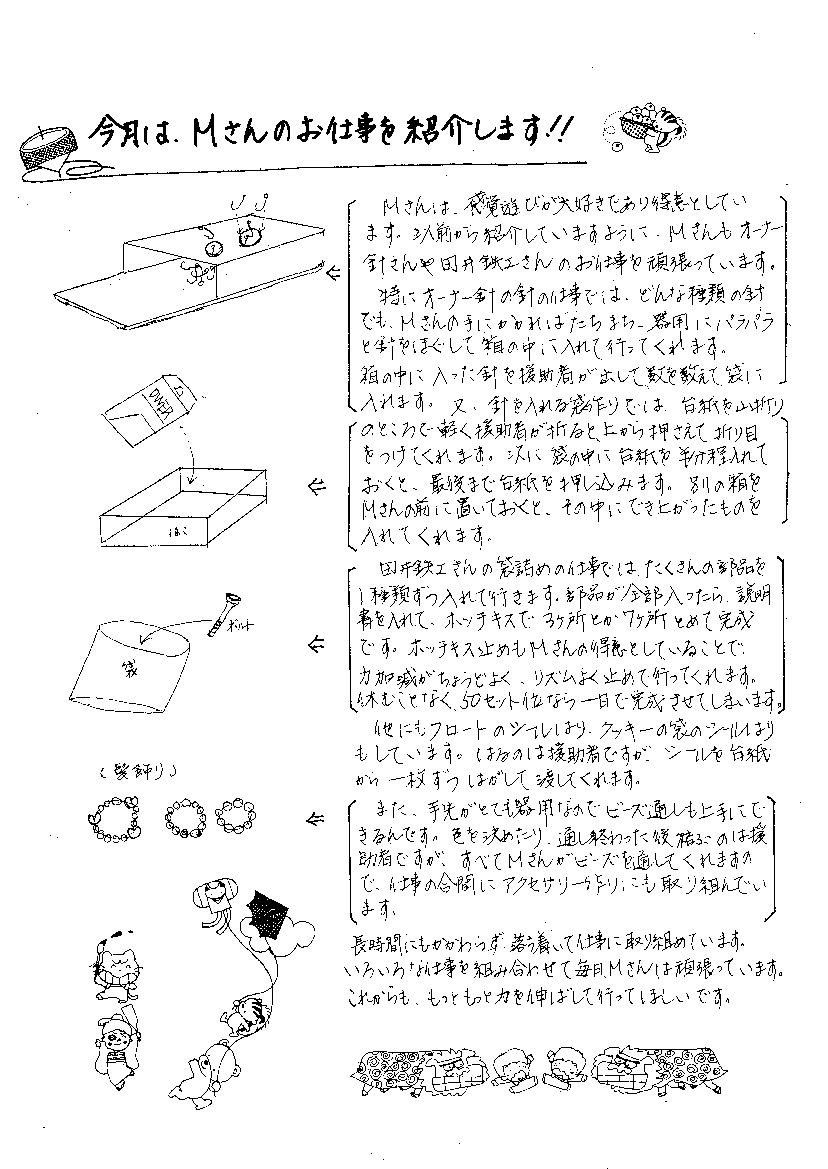 今月は、Mさんのお仕事を紹介します!!
Mさんは、感覚遊びが大好きであり得意としてい
ます。以前から紹介していますように、Mさんもオーナー
針さんや田井鉄工さんのお仕事を頑張っています。
特にオーナー針の針の仕事では、どんな種類の針
でも、Mさんの手にかかればたちまち、器用にパラパラ
と針をほぐして箱の中に入れて行ってくれます。
箱の中に入った針を援助者が出して数を数えて袋に
入れます。又、針を入れる袋作りでは、台紙を山折り
のところで軽く援助者が折ると、上から押さえて折り目
をつけてくれます。次に袋の中に台紙を半分程入れて
おくと、最後まで台紙を押し込みます。別の箱を
Mさんの前に置いておくと、その中にでき上がったものを
入れてくれます。
OWNER
はこ
田井鉄工さんの袋詰めの仕事では、たくさんの部品を
1種類ずつ入れて行きます。部品が全部入ったら、説明
書を入れて、ホッチキスで3ヶ所とか7ヶ所とめて完成
です。ホッチキス止めもMさんの得意としていることで、
力加減がちょうどよく、リズムよく止めて行ってくれます。
休むことなく、50セット位なら一日で完成させてしまいます。
ボルト
袋
他にもフロートのシールはり、クッキーの袋のシールはり
もしています。はるのは援助者ですが、シールを台紙
から一枚ずつはがして渡してくれます。
(髪飾り)
また、手先がとても器用なのでビーズ通しも上手にで
きるんです。色を決めたり、通し終わった後結ぶのは援
助者ですが、すべてMさんがビーズを通してくれますの
で、仕事の合間にアクセサリー作りにも取り組んでい
ます。
長時間にもかかわらず、落ち着いて仕事に取り組めています。
いろいろな仕事を組み合わせて毎日、Mさんは頑張っています。
これからも、もっともっと力を伸ばして行ってほしいです。